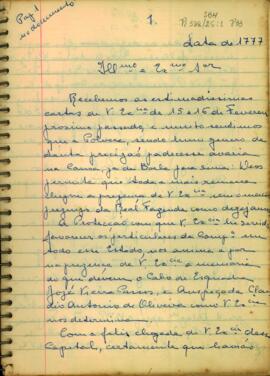 Pag. 1
no documento
1.
data de 1777
Ill.mo e Ex.mo Snr
Recebemos as estimadissimas
cartas de V. Ex.cia de 15 e 16 de Fevereiro
proximo passado, e muito sentimos
que a Polvora, sendo hum genero de
tanta precizão padecesse avaria
na Canoa
permita que toda a mais remessa
chegue a prezença de V. Ex.cia sem mais
prejuizo da Real Fazenda como dezejamos
A Protecção com que V. Ex.cia he servido
favorecer os particulares da Comp.a em
todo esse Estado, nos anima a por
na prezença de V. Ex.cia a memoria
que derem o Cabo de Esquadra
José Vieira Passos, e Anspeçada Clau
dio Antonio de Oliveira como V. Ex.cia
nos determina
Com a feliz chegada de V. Ex.cia dessa
Capital, certamente que